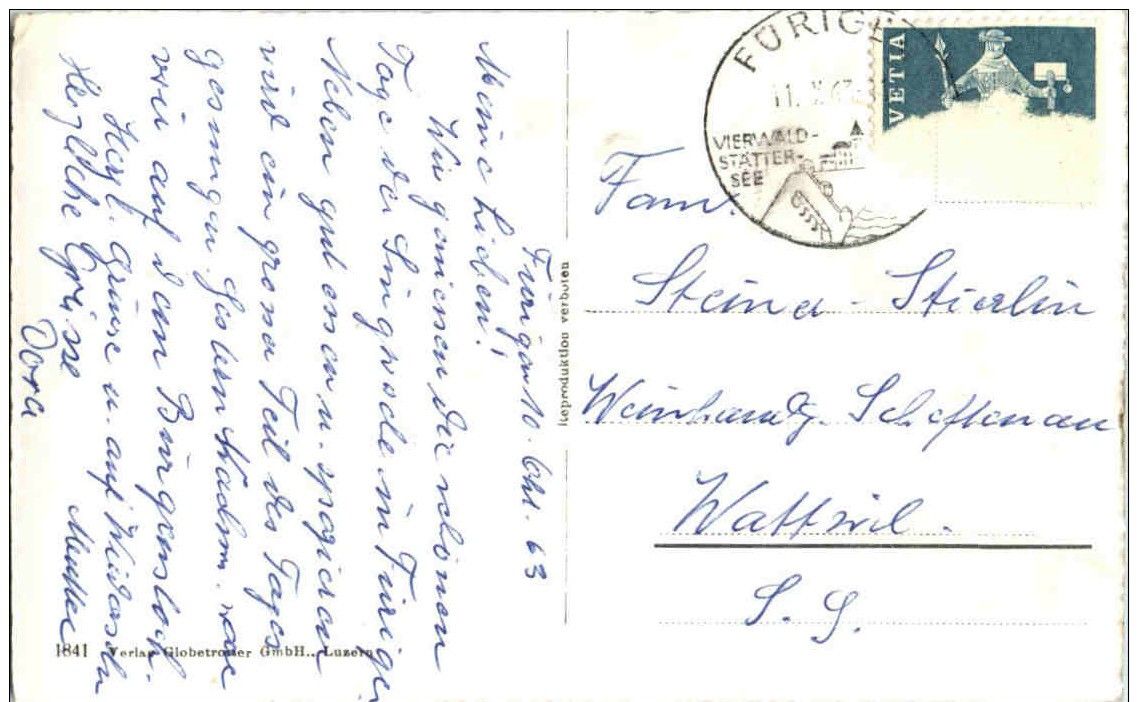 Fürigen 10. Okt. 63
Meine Lieben!
Wir geniesen die schönen
Tage der Singwoche in Fürigen
Neben gut essen u. spazieren
wird ein grosser Teil des Tages
gesungen. Gestern Nachm. war
wir auf dem Bürgenstock.
Herzl. Grüsse u. auf Wiedersehn
Mutter
Herzliche Grüsse
Dora
1841 Verlag Globetrotter GmbH., Luzern
Reproduktion verboten
FÜRIGE
11. X. 63
VIERWALD-
STÄTTER-
SEE
VETIA
Fam.
Steiner - Stierlin
Weinhandlg. Scheftenau
Wattwil.
S. G.